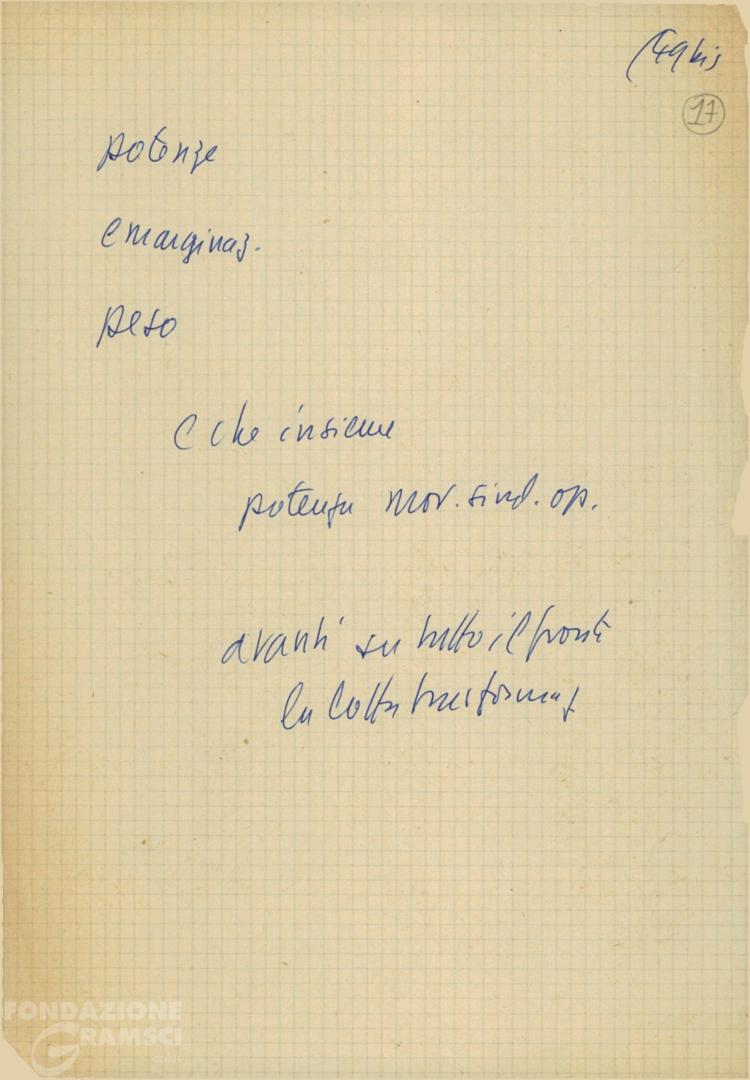 (49 bis
17
potenze
emarginaz.
peso
e che insieme
potenza mov. sind. op.
avanti su tutto il fronte
la lotta trasformaz
FONDAZIONE
GRAMSCI